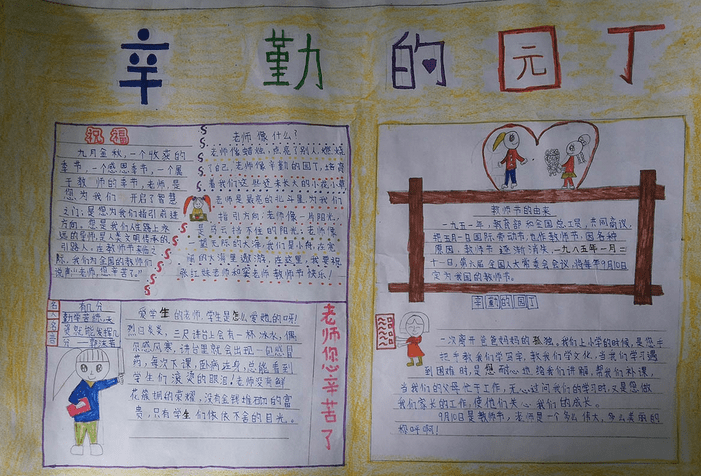 辛勤的园丁
祝福
九月金秋，一个收获的
季节，一个感恩季节，一个属
于教师的季节，老师是
您为我们 开启了智慧
之门；是您为我们指引前进
方向，您是我们人生路上永
引路人，在教师节来临之
际，我们为全国的教师们
说声："老师，您辛苦了。"
老师像什么？
老师像蜡烛，点亮了别人燃烧
了自己，老师像辛勤的园丁，培育
着我们这些还未长大的小花小草
老师是最亮的北斗星为我们
指引方向，老师像一片阳光，
是乌云挡不住的阳光；老师像
无际的大海，我们是小鱼在宽
的大海里遨游，在这里，我要祝
老师教师节快乐！
名人名言
有几分
勤学苦练，天
资就能发挥几
分 一郭沫若
爱学生的老师，学生是怎么爱她的呀！
烈日炎炎，三尺讲台会有一杯冰水，偶
尔感风寒，讲台里就会出现一包感冒
药，每次下课，卧病在床，总能看到
学生们滚烫的眼泪！老师没有鲜
花簇拥的荣耀，没有金钱堆砌的富
贵，只有学生们依依不舍的目光。
老师您辛苦了
教师节的由来
一九五一年，教育部和全国总工会，共同商议，
把五月一日国际劳动节，也作教师节，因各种
原因，教师节逐渐消失，一九八五年一月二
十一日，第六届全国人大常委会会议，将每年9月10日
定为我国的教师节。
辛勤的园丁
一次离开爸爸妈妈的孤独，我们上小学的时候，是您手
把手教我们学写字，教我们学文化，当我们学习遇
到困难时，是您耐心地给我们讲解，帮我们补课，
当我们的父母忙于工作，无心过问我们的学习时，又是您做
我们家长的工作，使他们关心我们的成长。
9月10日是教师节，老师是一个多么伟大，多么美丽的
称呼啊！